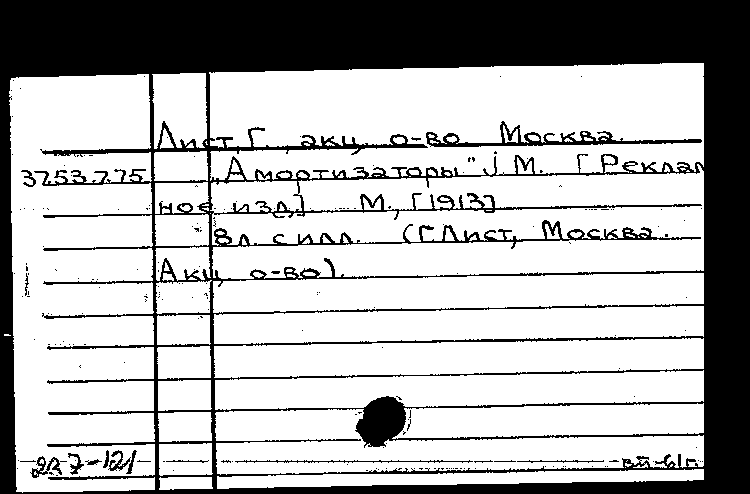 Лист, Г., акц. о-во. Москва.
3753.7.75. „Амортизаторы" j М. [Реклам
ное изд.] М., [1913]
8 л. с илл. (Г. Лист, Москва.
Акц. о-во).
227-121 вп-61г.